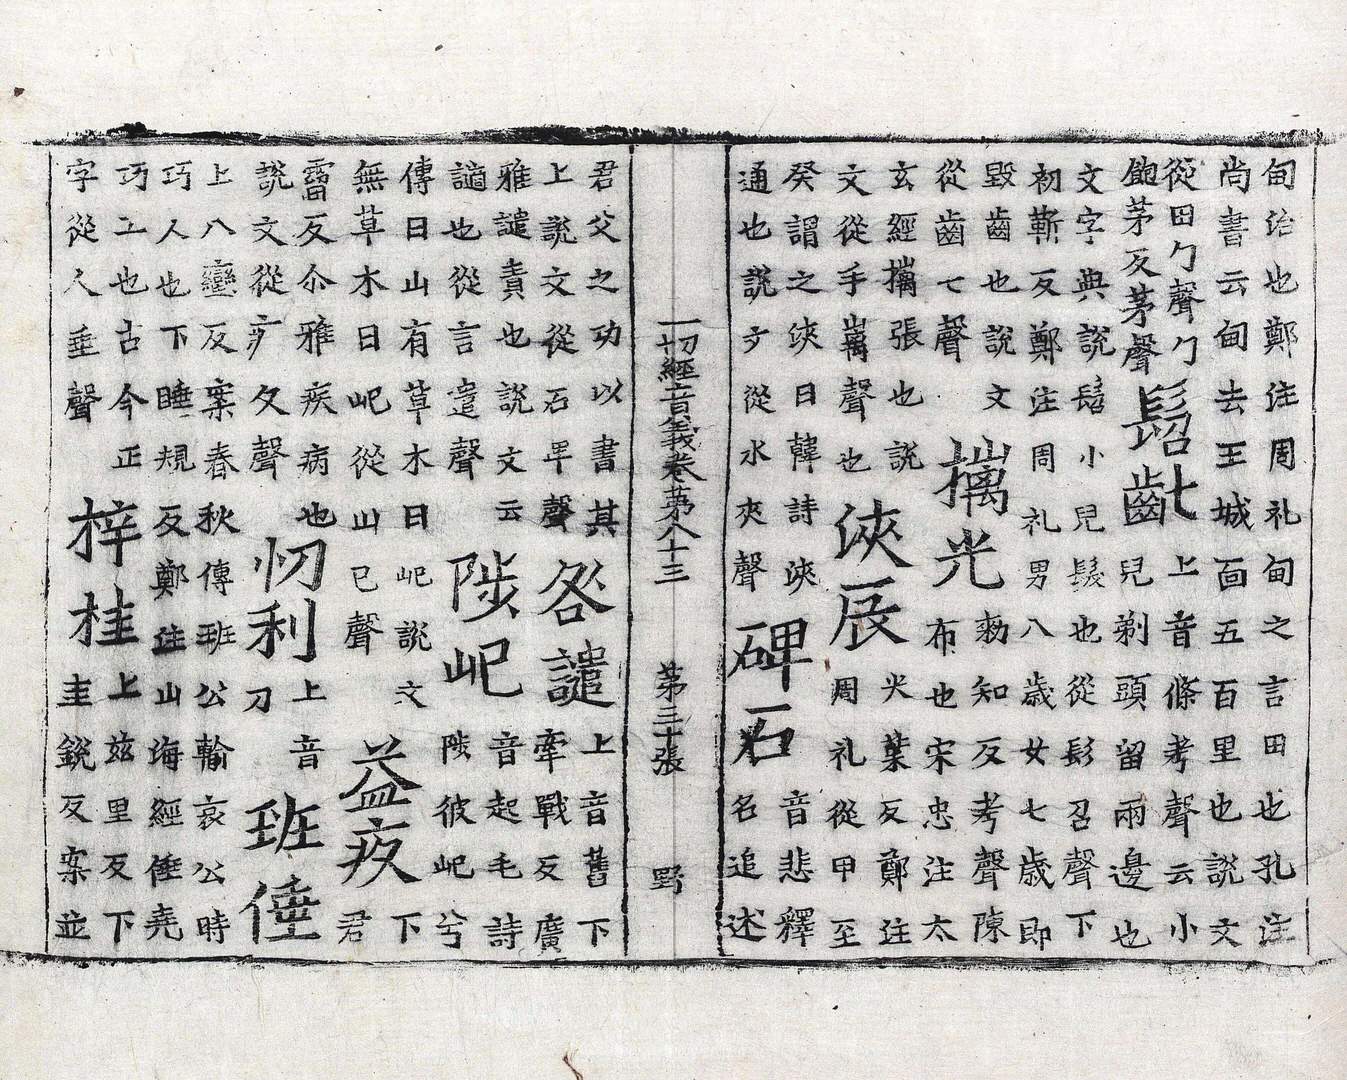 甸治也鄭注周礼甸之言田也孔注
尚書云甸去王城面五百里也說文
從田勹聲勹
飽茅反茅聲
髫齔
上音條考聲云小
兒剃頭留兩邊也
文字典說髫小兒髮也從髟召聲下
初靳反鄭注周礼男八歲女七歲即
毀齒也說文
從齒七聲
摛光
勑知反考聲陳
布也宋忠注太
玄經摛張也說
文從手离聲也
浹辰
尖葉反鄭注
周礼從甲至
癸謂之浹日韓詩浹
通也說文從水夾聲
碑石
音悲釋
名追述
一切經音義卷第八十三 第三十張 野
君父之功以書其
上說文從石卑聲
咎譴
上音舊下
牽戰反廣
雅譴責也說文云
讁也從言遣聲
陟屺
音起毛詩
陟彼屺兮
傳曰山有草木曰屺說文
無草木曰屺從山已聲
益疚
下
君
霤反尒雅疾病也
說文從疒久聲
忉利
上音
刀
班倕
上八蠻反案春秋傳班公輸哀公時
巧人也下睡規反鄭注山海經倕堯
巧工也古今正
字從人垂聲
梓桂
上茲里反下
圭銳反案並